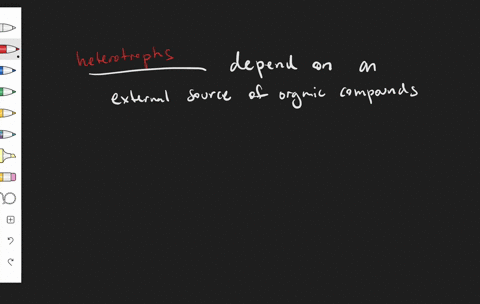 heterotrophs depend on an
external source of orgnic compounds